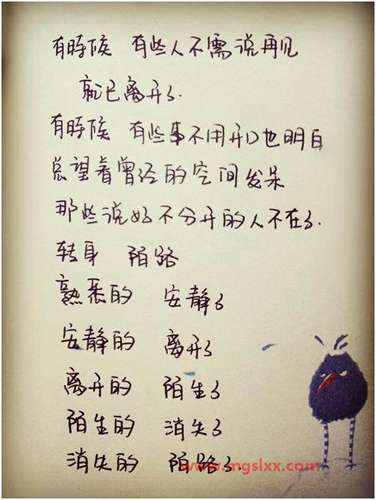 有時候 有些人不需说再见
就已离开了.
有時候 有些事不用开口也明白
总望着曾经的空间发呆
那些说好不分开的人不在了.
转身 陌路
熟悉的 安静了
安静的 离开了
离开的 陌生了
陌生的 消失了
消失的 陌路了.
www.mgslxx.com